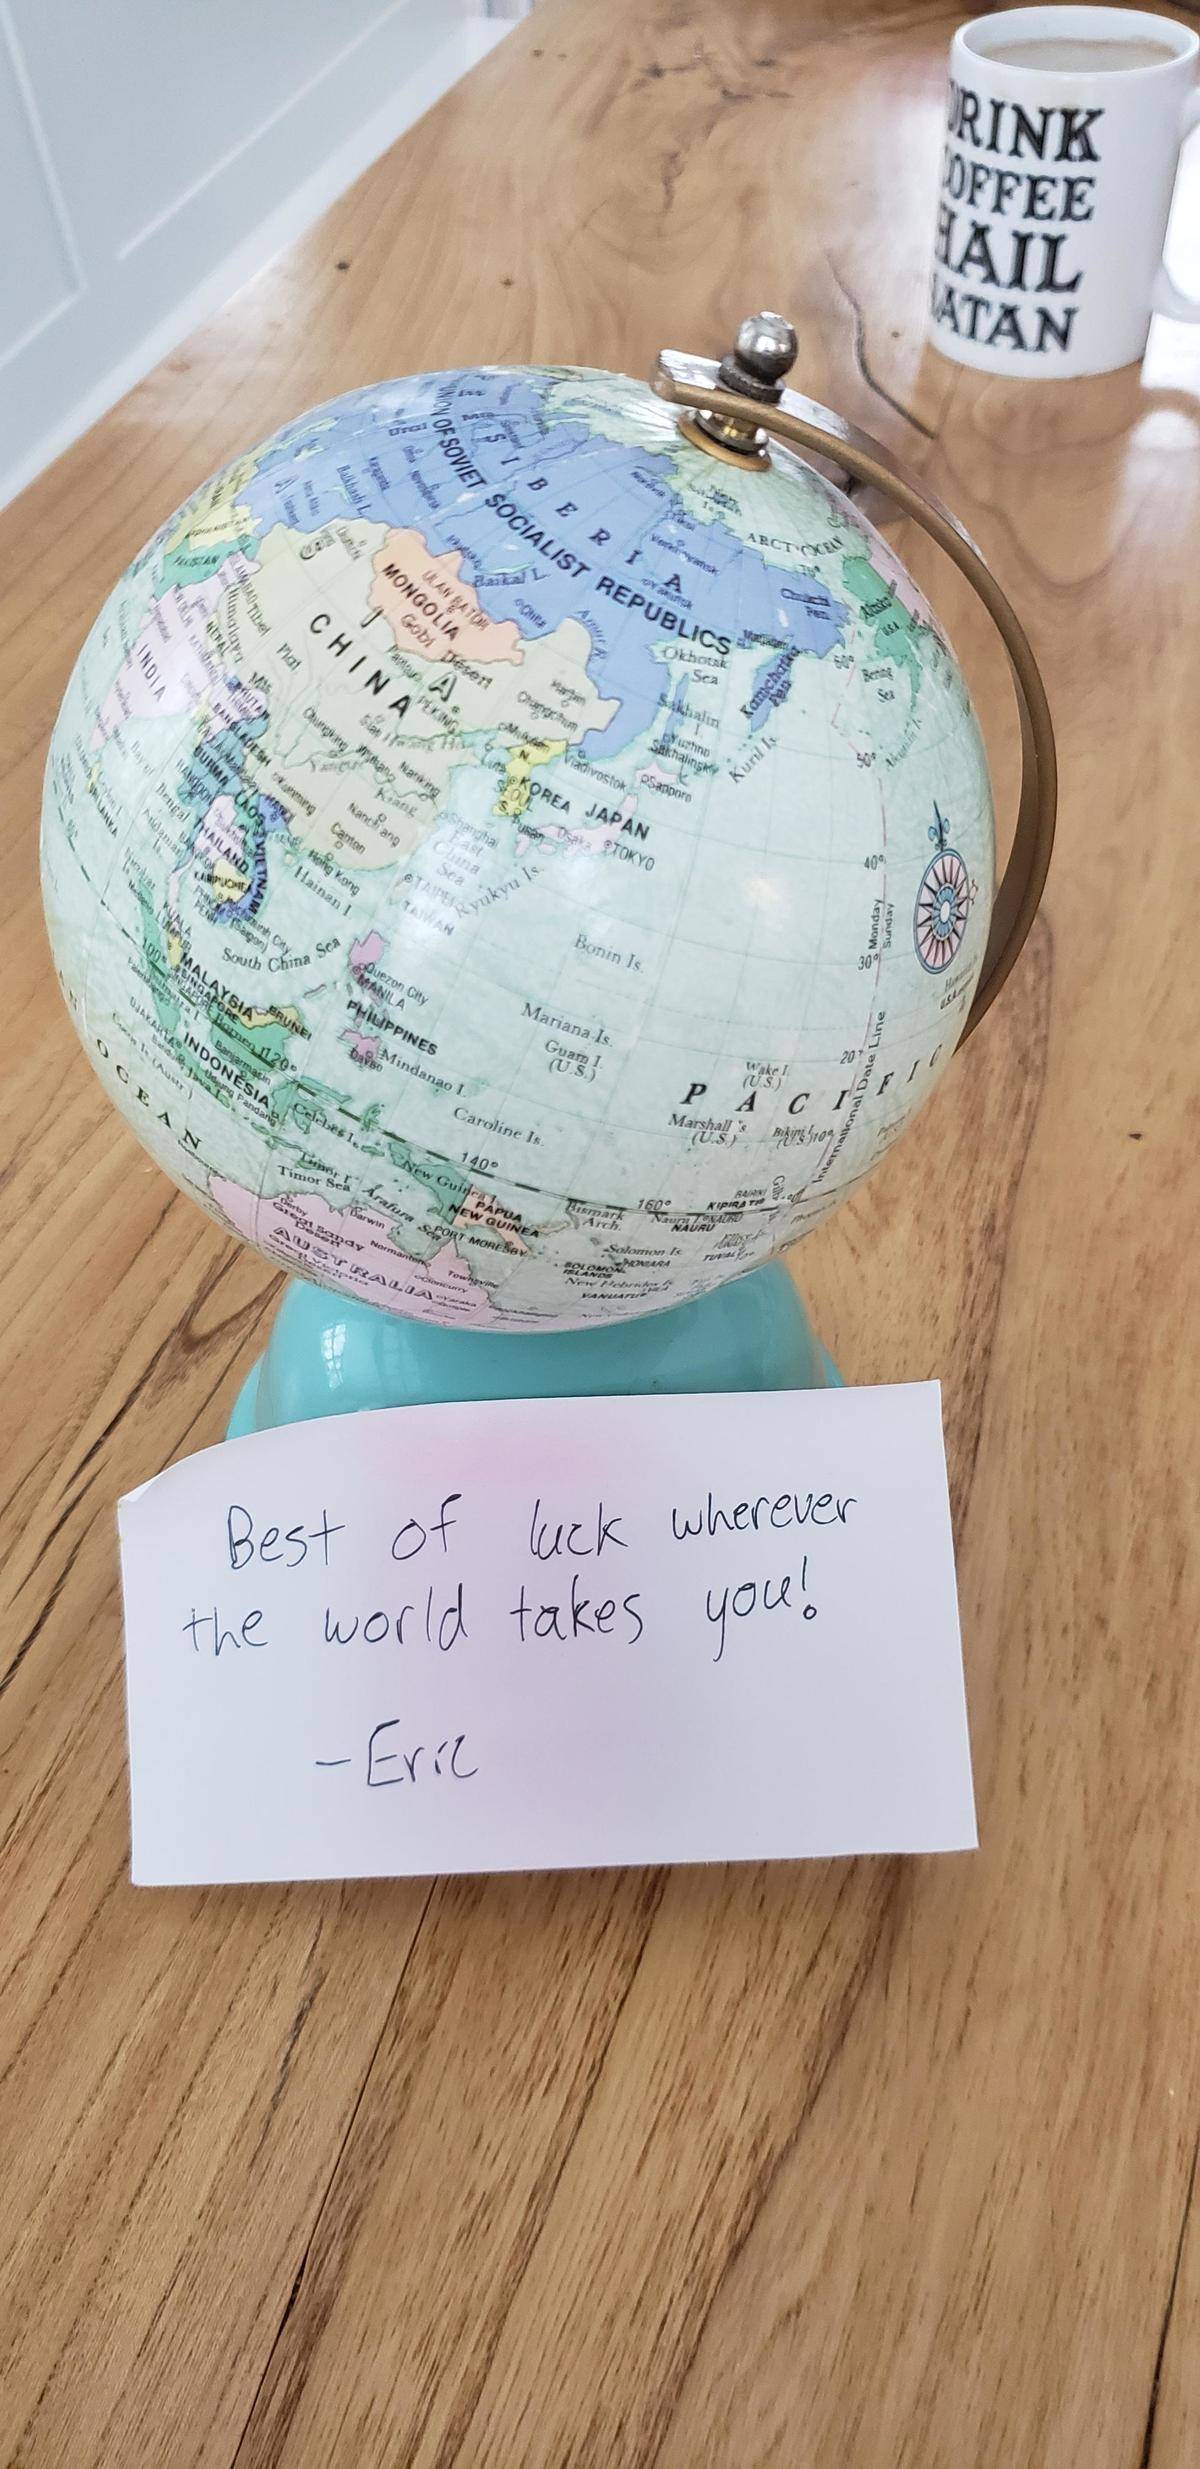 DRINK
COFFEE
HAIL
SATAN
UNION OF SOVIET SOCIALIST REPUBLICS
SIBERIA
ARCTIC OCEAN
Alaska
U.S.A.
Bering
Sea
60°
50°
40°
30°
20°
10°
Baikal L.
Balkhash L.
Okhotsk
Sea
Kamchatka
Pen.
Sakhalin
I.
Yuzhno
Sakhalinsk
Kuril Is.
MONGOLIA
ULAN BATOR
Gobi
Desert
CHINA
PEKING
Harbin
Changchun
Mukden
Vladivostok
Sapporo
N.
KOREA
S.
Pusan
JAPAN
Osaka
TOKYO
Shanghai
East
China
Sea
Ryukyu Is.
Nanking
Nanchang
Canton
Kiang
Hong Kong
Hainan I.
TAIPEI
TAIWAN
PAKISTAN
INDIA
NEPAL
BANGLADESH
BURMA
LAOS
THAILAND
VIETNAM
KAMPUCHEA
SRI LANKA
Bay of
Bengal
South China Sea
Bonin Is.
Mariana Is.
Guam I.
(U.S.)
Wake I.
(U.S.)
Monday
Sunday
International Date Line
PACIFIC
Marshall Is
(U.S.)
Bikini I.
(U.S.)
Quezon City
MANILA
PHILIPPINES
Davao
Mindanao I.
Caroline Is.
MALAYSIA
SINGAPORE
BRUNEI
Borneo I.
INDONESIA
Banjarmasin
Ujung Pandang
Celebes I.
100°
120°
140°
160°
OCEAN
Timor I.
Timor Sea
Arafura
Sea
New Guinea I.
PAPUA
NEW GUINEA
PORT MORESBY
Bismark
Arch.
NAURU
Solomon Is.
HONIARA
SOLOMON
ISLANDS
New Hebrides Is.
VANUATU
TUVALU
Derby
Great Sandy
Desert
Darwin
Normanton
Townsville
Cloncurry
AUSTRALIA
Best of luck wherever
the world takes you!
-Eric